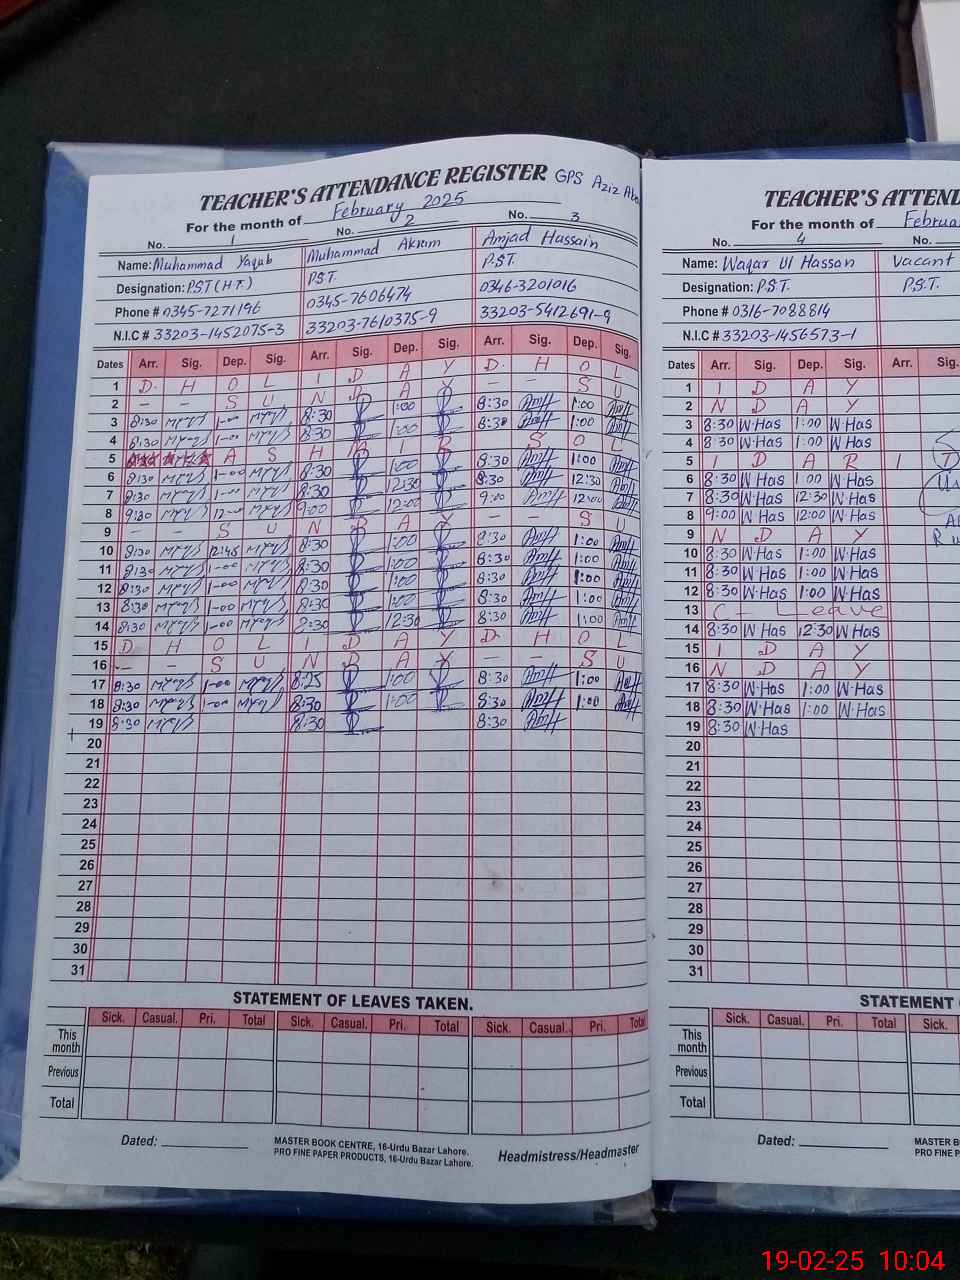 TEACHER'S ATTENDANCE REGISTER GPS Aziz
For the month of February 2025
No. 1 No. 2 No. 3
Name: Muhammad Yaqub Muhammad Akram Amjad Hussain
Designation: P.S.T (H.T) P.S.T. P.S.T.
Phone # 0345-7271196 0345-7606474 0346-3201016
N.I.C # 33203-1452075-3 33203-7610375-9 33203-5412691-9
Dates Arr. Sig. Dep. Sig. Arr. Sig. Dep. Sig. Arr. Sig. Dep. Sig.
1 D. H O L I D A Y D. H O L
2 - - S U N D A Y - - S U
3 8:30 1-00 8:30 1:00 8:30 1:00
4 8:30 1-00 8:30 1:00 8:30 1:00
5 K A S H M I R S O L
6 8:30 1-00 8:30 1:00 8:30 1:00
7 8:30 1-00 8:30 12:30 8:30 12:30
8 9:30 12-00 9:00 12:00 9:00 12:00
9 - - S U N D A Y - - S U
10 8:30 12:45 8:30 1:00 8:30 1:00
11 8:30 1-00 8:30 1:00 8:30 1:00
12 8:30 1-00 8:30 1:00 8:30 1:00
13 8:30 1-00 8:30 1:00 8:30 1:00
14 8:30 1-00 8:30 12:30 8:30 1:00
15 D H O L I D A Y D. H O L
16 - - S U N D A Y - - S U
17 8:30 1-00 8:25 1:00 8:30 1:00
18 8:30 1-00 8:30 1:00 8:30 1:00
19 8:30 8:30 8:30
20
21
22
23
24
25
26
27
28
29
30
31
STATEMENT OF LEAVES TAKEN.
Sick. Casual. Pri. Total Sick. Casual. Pri. Total Sick. Casual. Pri. Total
This month
Previous
Total
Dated:
MASTER BOOK CENTRE, 16-Urdu Bazar Lahore.
PRO FINE PAPER PRODUCTS, 16-Urdu Bazar Lahore.
Headmistress/Headmaster
TEACHER'S ATTEND
For the month of Februa
No. 4 No.
Name: Waqar Ul Hassan Vacant
Designation: P.S.T. P.S.T.
Phone # 0316-7088814
N.I.C # 33203-1456573-1
Dates Arr. Sig. Dep. Sig. Arr. Sig.
1 I D A Y
2 N D A Y
3 8:30 W·Has 1:00 W·Has
4 8:30 W·Has 1:00 W·Has
5 I D A R I T
6 8:30 W Has 1:00 W·Has
7 8:30 W·Has 12:30 W·Has
8 9:00 W Has 12:00 W·Has
9 N D A Y
10 8:30 W·Has 1:00 W·Has
11 8:30 W Has 1:00 W·Has
12 8:30 W·Has 1:00 W·Has
13 C - Leave
14 8:30 W Has 12:30 W·Has
15 I D A Y
16 N D A Y
17 8:30 W·Has 1:00 W·Has
18 8:30 W·Has 1:00 W·Has
19 8:30 W·Has
20
21
22
23
24
25
26
27
28
29
30
31
STATEMENT
Sick. Casual. Pri. Total Sick.
This month
Previous
Total
Dated:
MASTER B
PRO FINE P
19-02-25 10:04